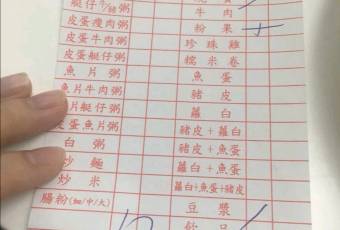 艇仔
粥
牛肉
皮蛋瘦肉粥
粉果
皮蛋牛肉粥
珍珠雞
皮蛋艇仔粥
糯米卷
魚片粥
魚蛋
魚片牛肉粥
豬皮
魚片艇仔粥
蘿白
皮蛋魚片粥
豬皮+蘿白
白粥
豬皮+魚蛋
炒麵
蘿白+魚蛋
炒米
蘿白+魚蛋+豬皮
腸粉(細/中/大)
豆漿